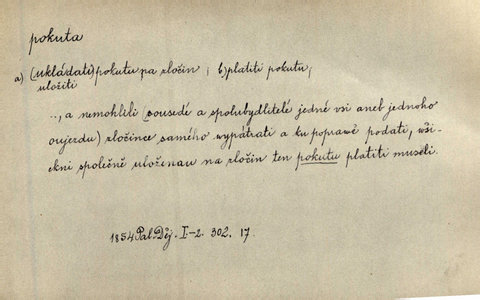 pokuta
a) (ukládati) pokutu na zločin ; b) platiti pokutu;
uložiti
.., a nemohlili (sousedé a spolubydlitelé jedné vsi aneb jednoho
oujezdu) zločince samého vypátrati a ku popravě podati, wši-
ckni společně uloženau na zločin ten pokutu platiti museli.
1854 Pal. Děj. I-2. 302. 17.